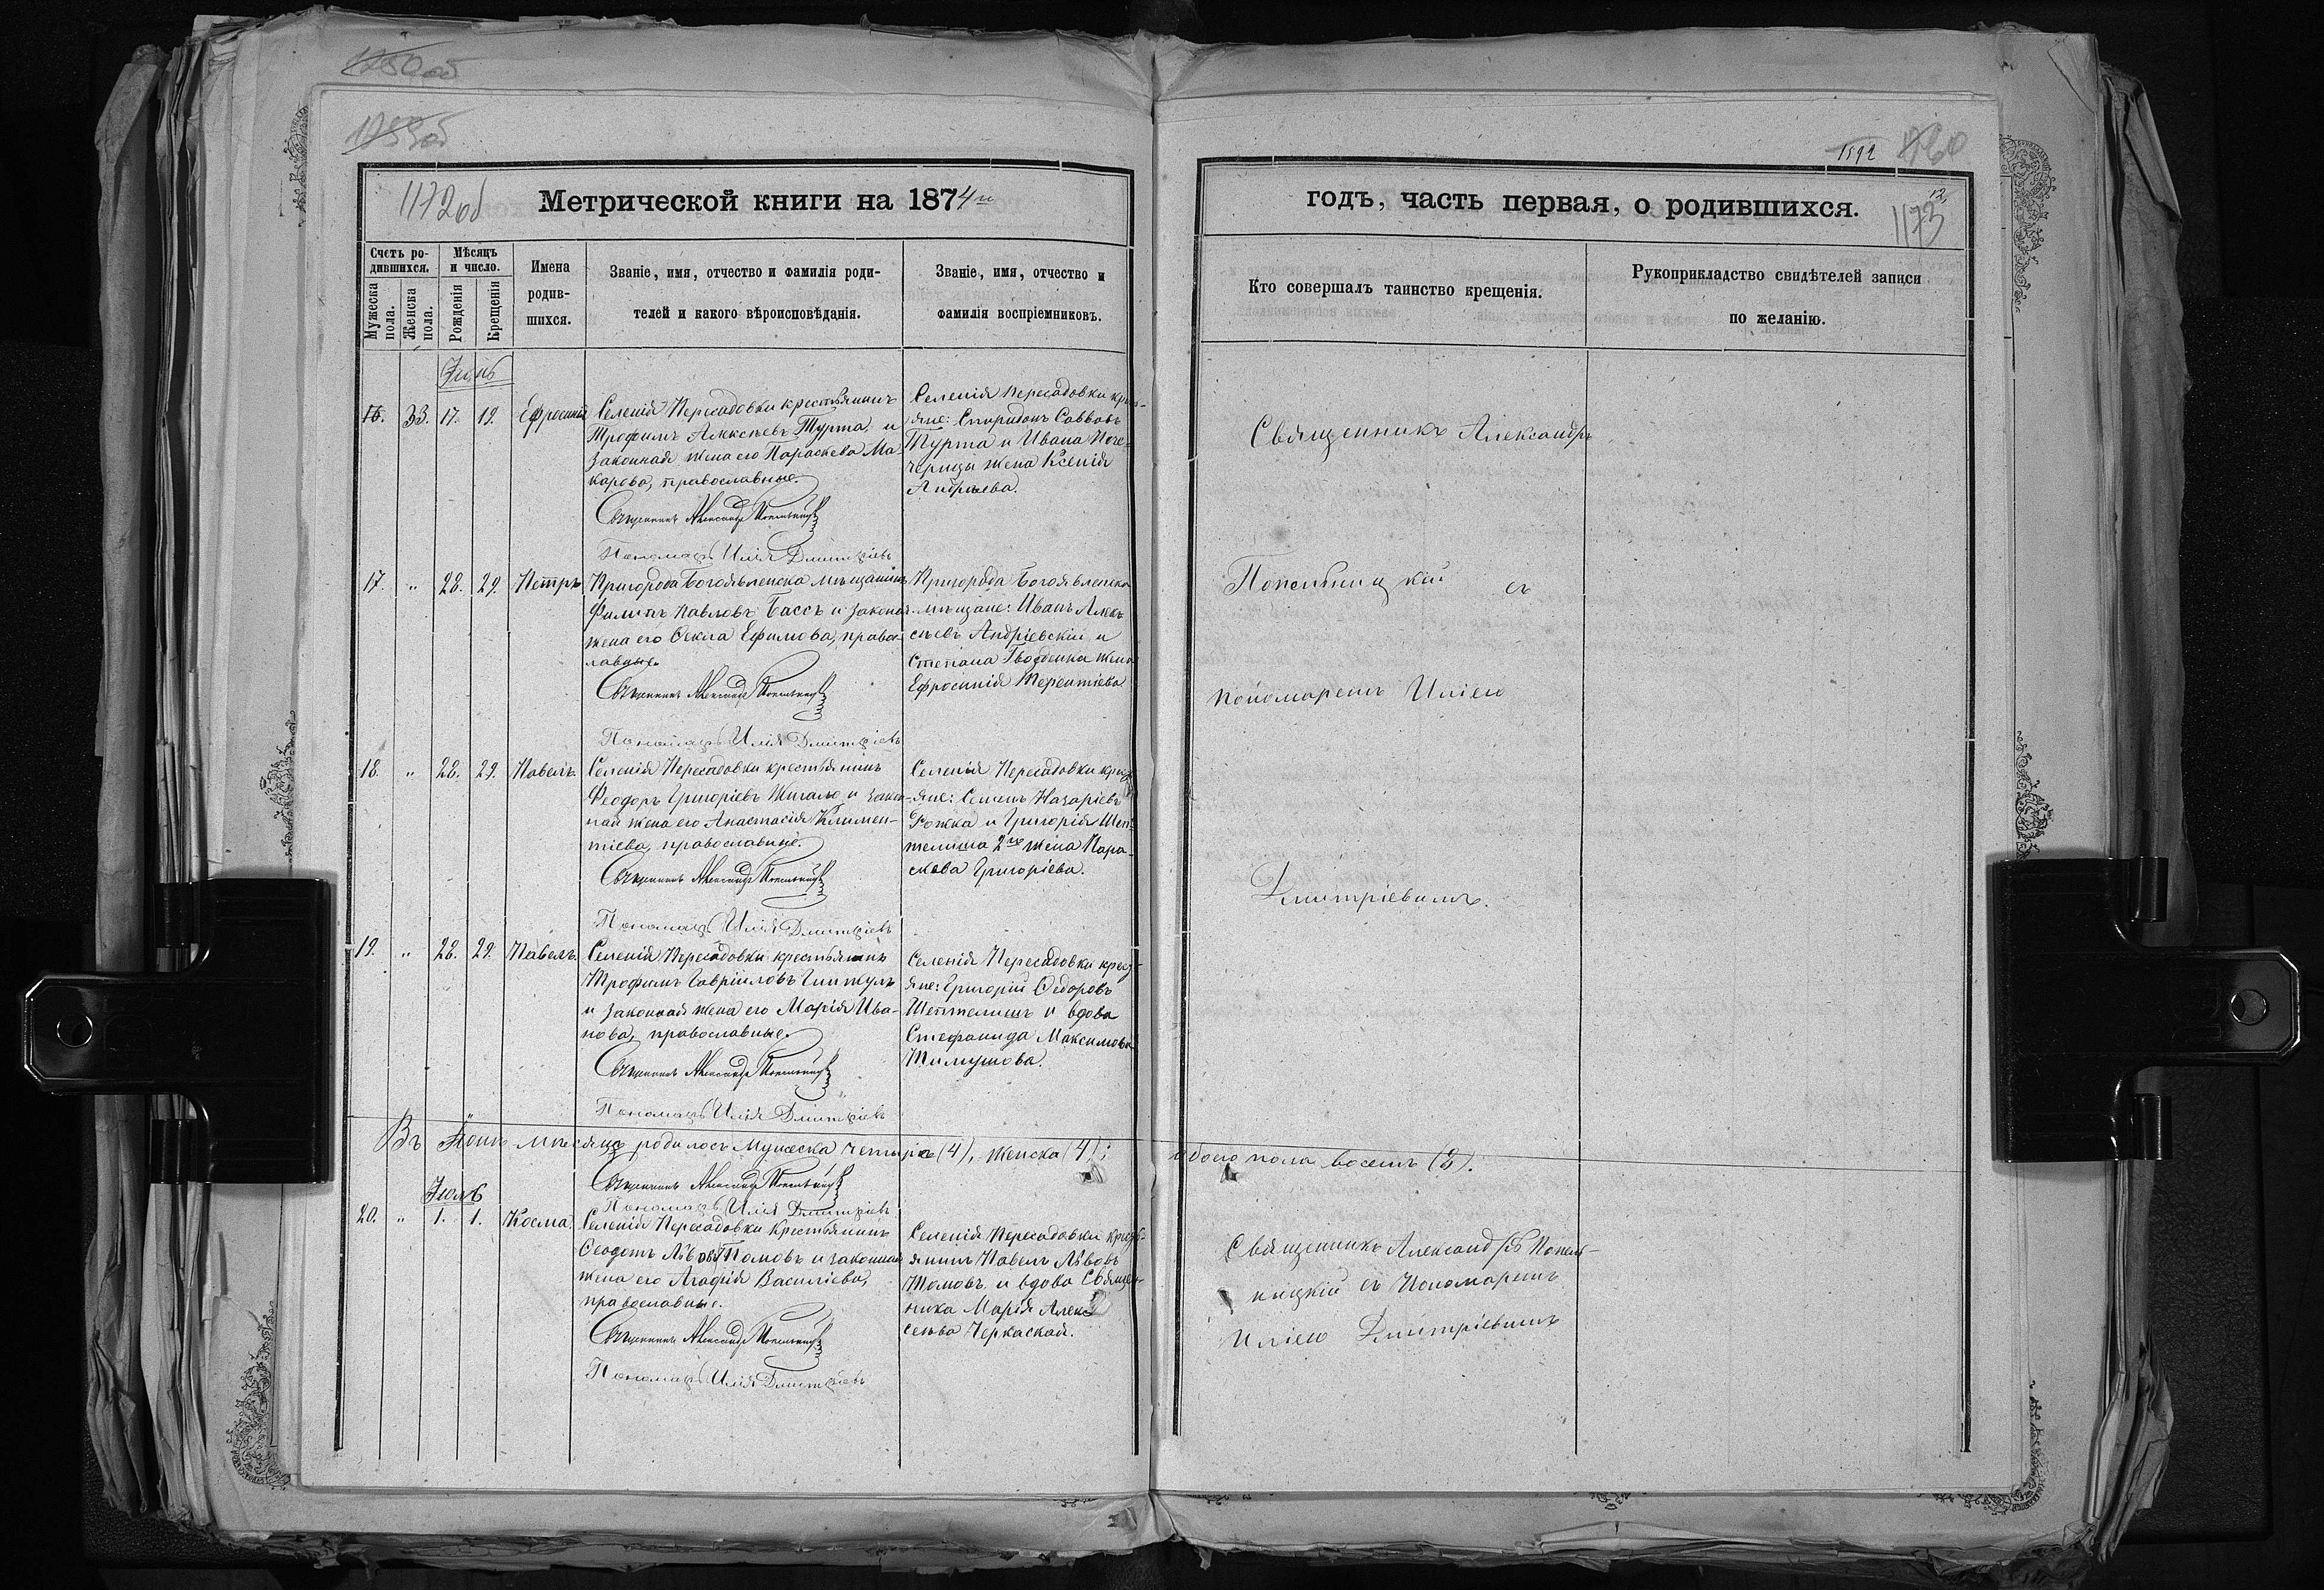 1750 об
1759 об
1172 об
Метрической книги на 1874 й
Счетъ ро-
дившихся.
Мужеска пола.
Женска пола.
Мѣсяцъ
и число.
Рожденія
Крещенія
Имена
родив-
шихся.
Званіе, имя, отчество и фамилія роди-
телей и какого вѣроисповѣданія.
Званіе, имя, отчество и
фамилія воспріемниковъ.
Іюнь
16. 33. 17. 19. Ефросинія
Селенія Пересадовки крестьянинъ
Трофимъ Алексѣевъ Турта и
законная жена его Параскева Ма-
карова, православные.
Священникъ Александръ Попельницкій
Пономарь Илія Дмитріевъ
Селенія Пересадовки крес-
яне: Спиридонъ Саввовъ
Турта и Ивана Пече-
черицы жена Ксенія
Андреева.
17. " 28. 29. Петръ
Пригорода Богоявленска мѣщанинъ
Филипъ Павловъ Бассъ и законая
жена его Ѳекла Ефимова, право-
лавные.
Священникъ Александръ Попельницкій
Пономарь Илія Дмитріевъ
Пригорода Богоявленска
мѣщане: Иванъ Алек-
сѣевъ Андріевскій и
Степана Гвозденка жена
Ефросинія Терентіева
18. " 28. 29. Павелъ.
Селенія Пересадовки крестьянинъ
Ѳеодоръ Григоріевъ Жигало и закон-
ная жена его Анастасія Климен-
тіева, православные.
Священникъ Александръ Попельницкій
Пономарь Илія Дмитріевъ
Селенія Пересадовки крест-
яне: Семенъ Назаріевъ
Рожка и Григорія Шеп-
телиша 2го жена Пара-
скева Григоріева.
19. " 28. 29. Павелъ.
Селенія Пересадовки крестьянинъ
Трофимъ Гавріиловъ
и законная жена его Марія Ива-
нова, православные.
Священникъ Александръ Попельницкій
Пономарь Илія Дмитріевъ
Селенія Пересадовки крест-
яне: Григорій Ѳедоровъ
Шептелишъ и вдова
Стефанида Максимова
Тимушова.
Въ Іюнѣ мѣсяцѣ родилось мужеска четыре (4), женска (4);
обоего пола восемь (8).
Священникъ Александръ Попельницкій
Пономарь Илія Дмитріевъ
Іюль
20. " 1. 1. Косма.
Селенія Пересадовки крестьянинъ
Ѳеодотъ Львовъ Томовъ и законная
жена его Агафія Василіева,
православные.
Священникъ Александръ Попельницкій
Пономарь Илія Дмитріевъ
Селенія Пересадовки кресть-
янинъ Павелъ Львовъ
Томовъ и вдова Священ-
ника Марія Алек-
сѣева Черкаская.
1592
1760
12.
1173
годъ, часть первая, о родившихся.
Кто совершалъ таинство крещенія.
Рукоприкладство свидѣтелей записи
по желанію.
Священникъ Александръ
Попельницкій съ
пономаремъ Иліею
Дмитріевымъ.
Священникъ Александръ Попель-
ницкій съ Пономаремъ
Иліею Дмитріевымъ